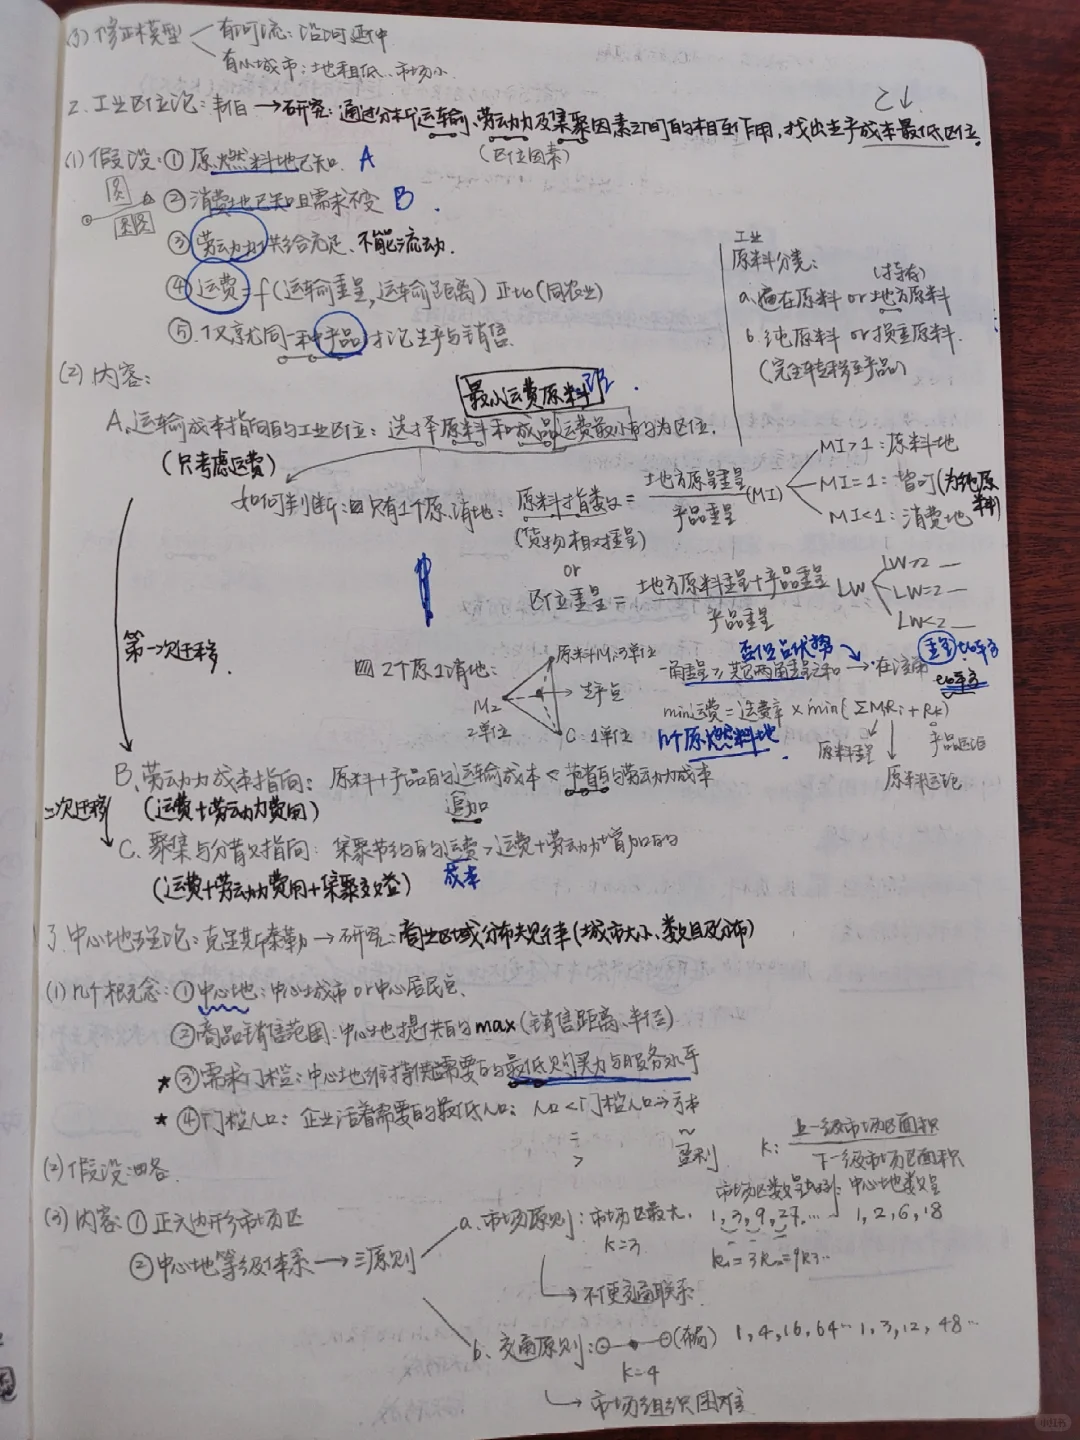 (3) 修正模型 有河流：沿河延伸
有小城市：地租低、市场小
2. 工业区位论：韦伯→研究：通过分析运输、劳动力及集聚因素之间的相互作用，找出生产成本最低区位。
(区位因素)
(1) 假设：① 原燃料地已知. A
② 消费地已知且需求不变 B
③ 劳动力供给充足、不能流动.
④ 运费=f(运输重量,运输距离) 正比(同农业)
⑤ 仅就同一种产品讨论生产与销售.
工业
原料分类：
a. 遍在原料 or 地方原料
b. 纯原料 or 损重原料.
(完全转移至产品)
(2) 内容：
最小运费原料
A. 运输成本指向的工业区位：选择原料和成品运费最小的为区位.
(只考虑运费)
如何判断：只有1个原、消地：原料指数=地方原料重量/产品重量(MI)
(货物相对重量)
MI>1：原料地
MI=1：皆可(为纯原料)
MI<1：消费地
or
区位重量=地方原料重量+产品重量/产品重量 LW
LW>2
LW=2
LW<2
第一次迁移.
2个原1消地：
原料M₁:3单位
M₂
2单位
生产点
C：1单位
一角重量≥其它两角重量之和→在该角
min运费=运费率×min(ΣMRi+Rk)
n个原燃料地
原料重
原料运距
产品运距
B. 劳动力成本指向：原料+产品的运输成本<节省的劳动力成本
(运费+劳动力费用) 追加
二次迁移
C. 聚集与分散指向：集聚节约的运费>运费+劳动力增加的
(运费+劳动力费用+集聚效益) 成本
3. 中心地理论：克里斯泰勒→研究：商业区域分布规律(城市大小、数目及分布)
(1) 几个概念：①中心地：中心城市or中心居民点.
②商品销售范围：中心地提供的max(销售距离、半径)
★③需求门槛：中心地维持供给需要的最低购买力与服务水平
★④门槛人口：企业活着需要的最低人口：人口<门槛人口→亏本
=
> 盈利
K：上一级市场区面积/下一级市场区面积
(2) 假设：略.
(3) 内容：①正六边形市场区
②中心地等级体系→三原则
a. 市场原则：市场区最大.
K=3
→不便交通联系.
市场区数量 中心地数量
1,3,9,27,… 1,2,6,18
b. 交通原则
K=4
1,4,16,64… 1,3,12,48…
→市场组织困难